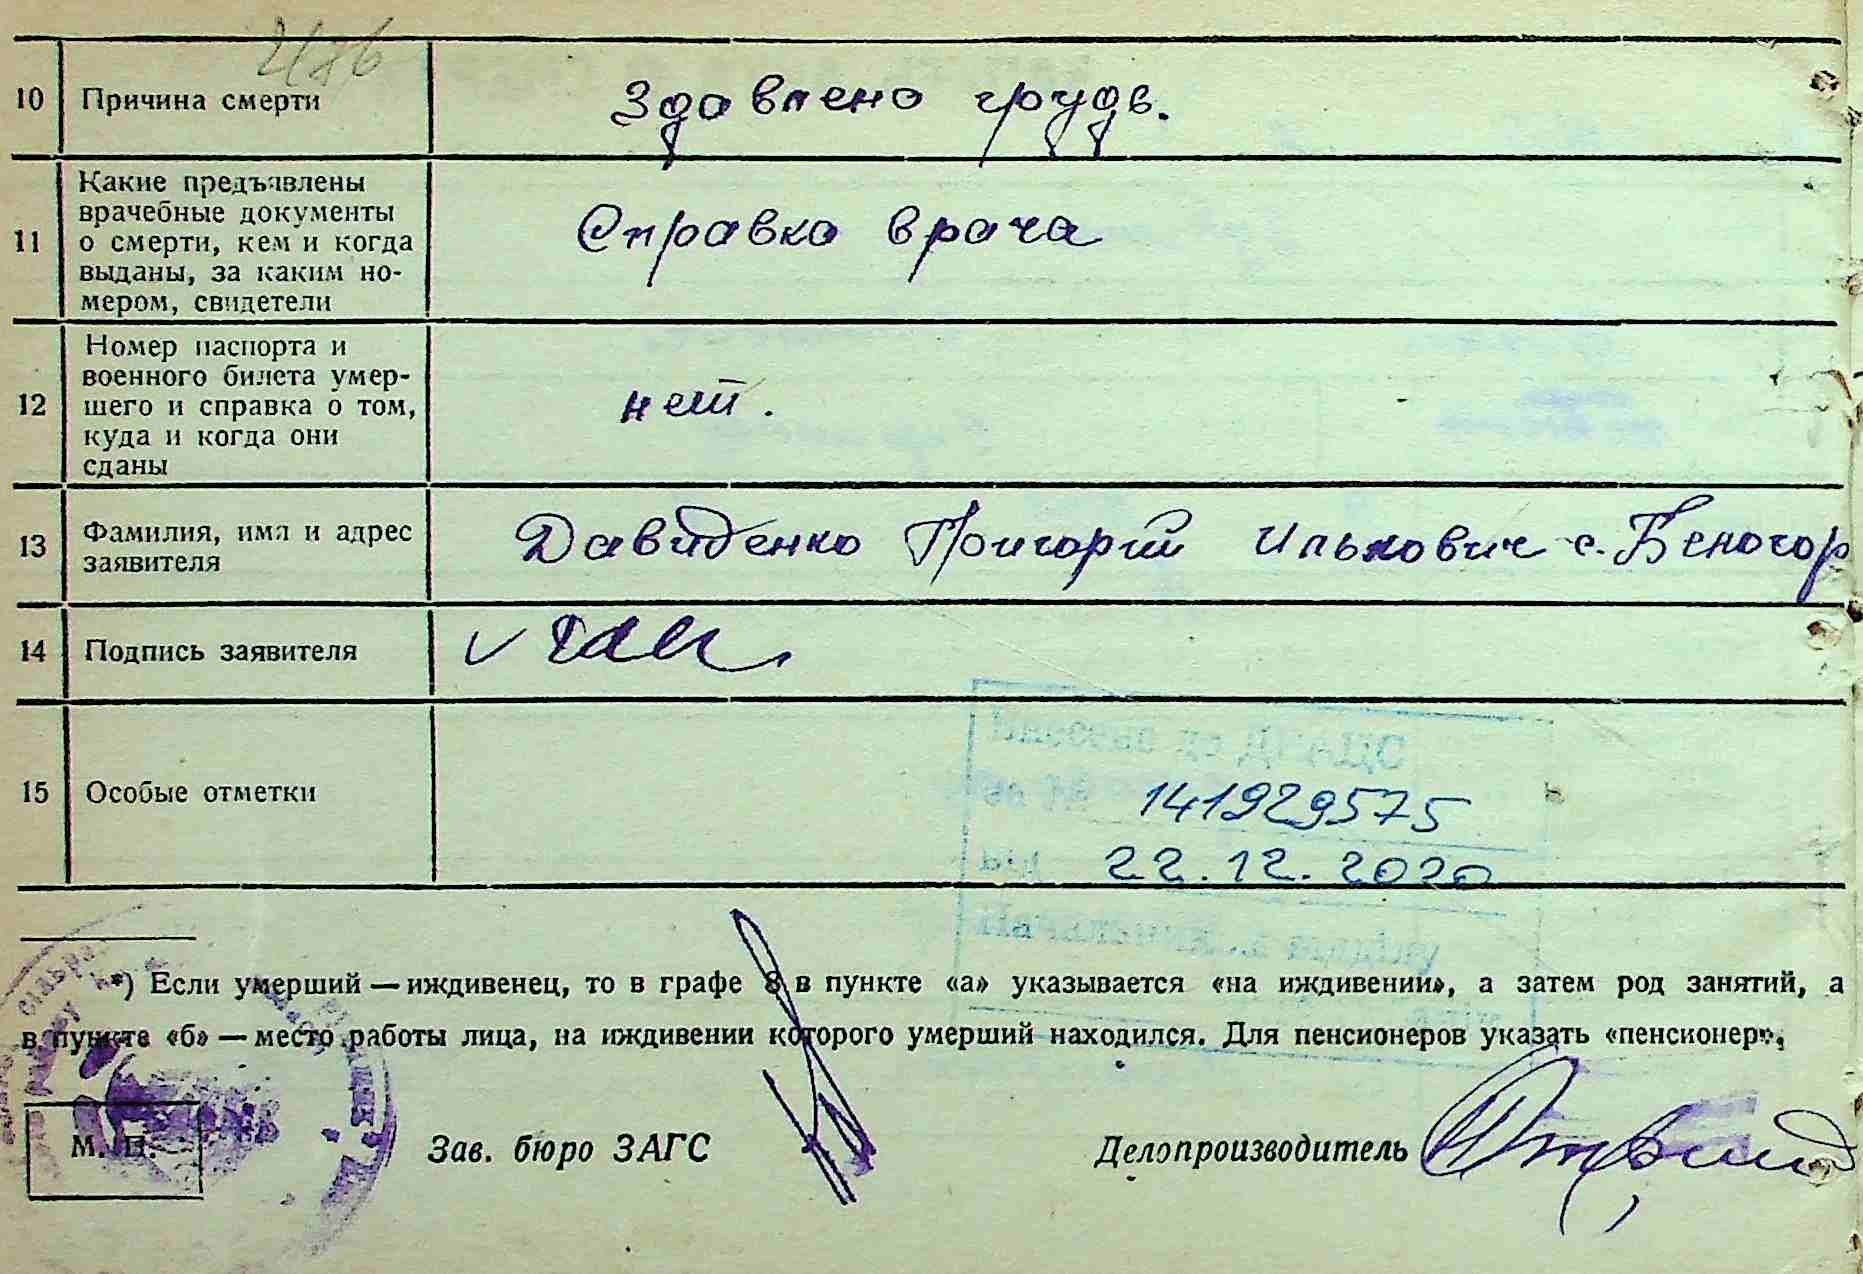 10 Причина смерти Здавлено грудь.
11 Какие предъявлены
врачебные документы
о смерти, кем и когда
выданы, за каким но-
мером, свидетели
Справка врача
12 Номер паспорта и
военного билета умер-
шего и справка о том,
куда и когда они
сданы
нет.
13 Фамилия, имя и адрес
заявителя
Давиденко Григорий Илькович с. Беногор
14 Подпись заявителя
15 Особые отметки
141929575
22.12.2020
*) Если умерший — иждивенец, то в графе 8 в пункте «а» указывается «на иждивении», а затем род занятий, а
в пункте «б» — место работы лица, на иждивении которого умерший находился. Для пенсионеров указать «пенсионер»,
М. П.
Зав. бюро ЗАГС
Делопроизводитель